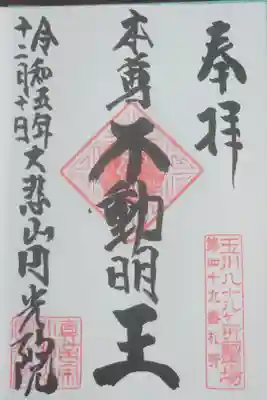 奉拝
玉川八十八ヶ所霊場
第四十九番札所
本尊不動明王
令和五年大悲山円光院
十二月十日